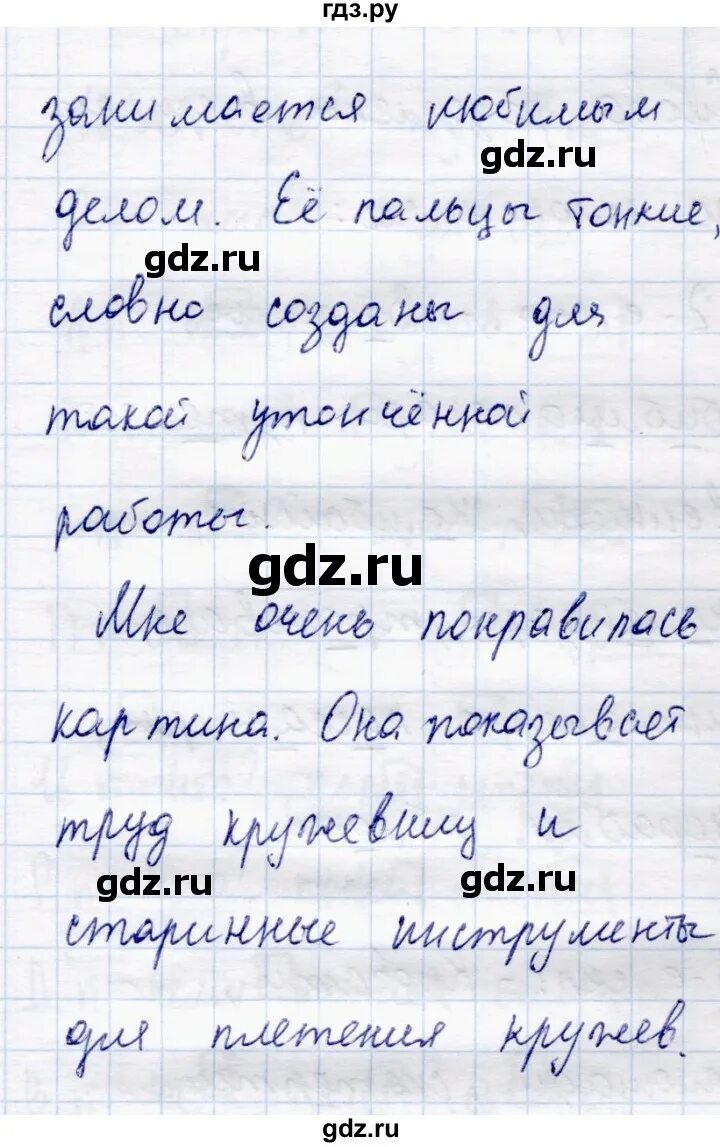 гдз.ру
занимается любимым
gdz.ru
делом. Её пальцы тонкие,
gdz.ru
словно созданы для
такой утончённой
работы.
gdz.ru
Мне очень понравилась
картина. Она показывает
труд кружевниц и
gdz.ru gdz.ru
старинные инструменты
для плетения кружев.
gdz.ru